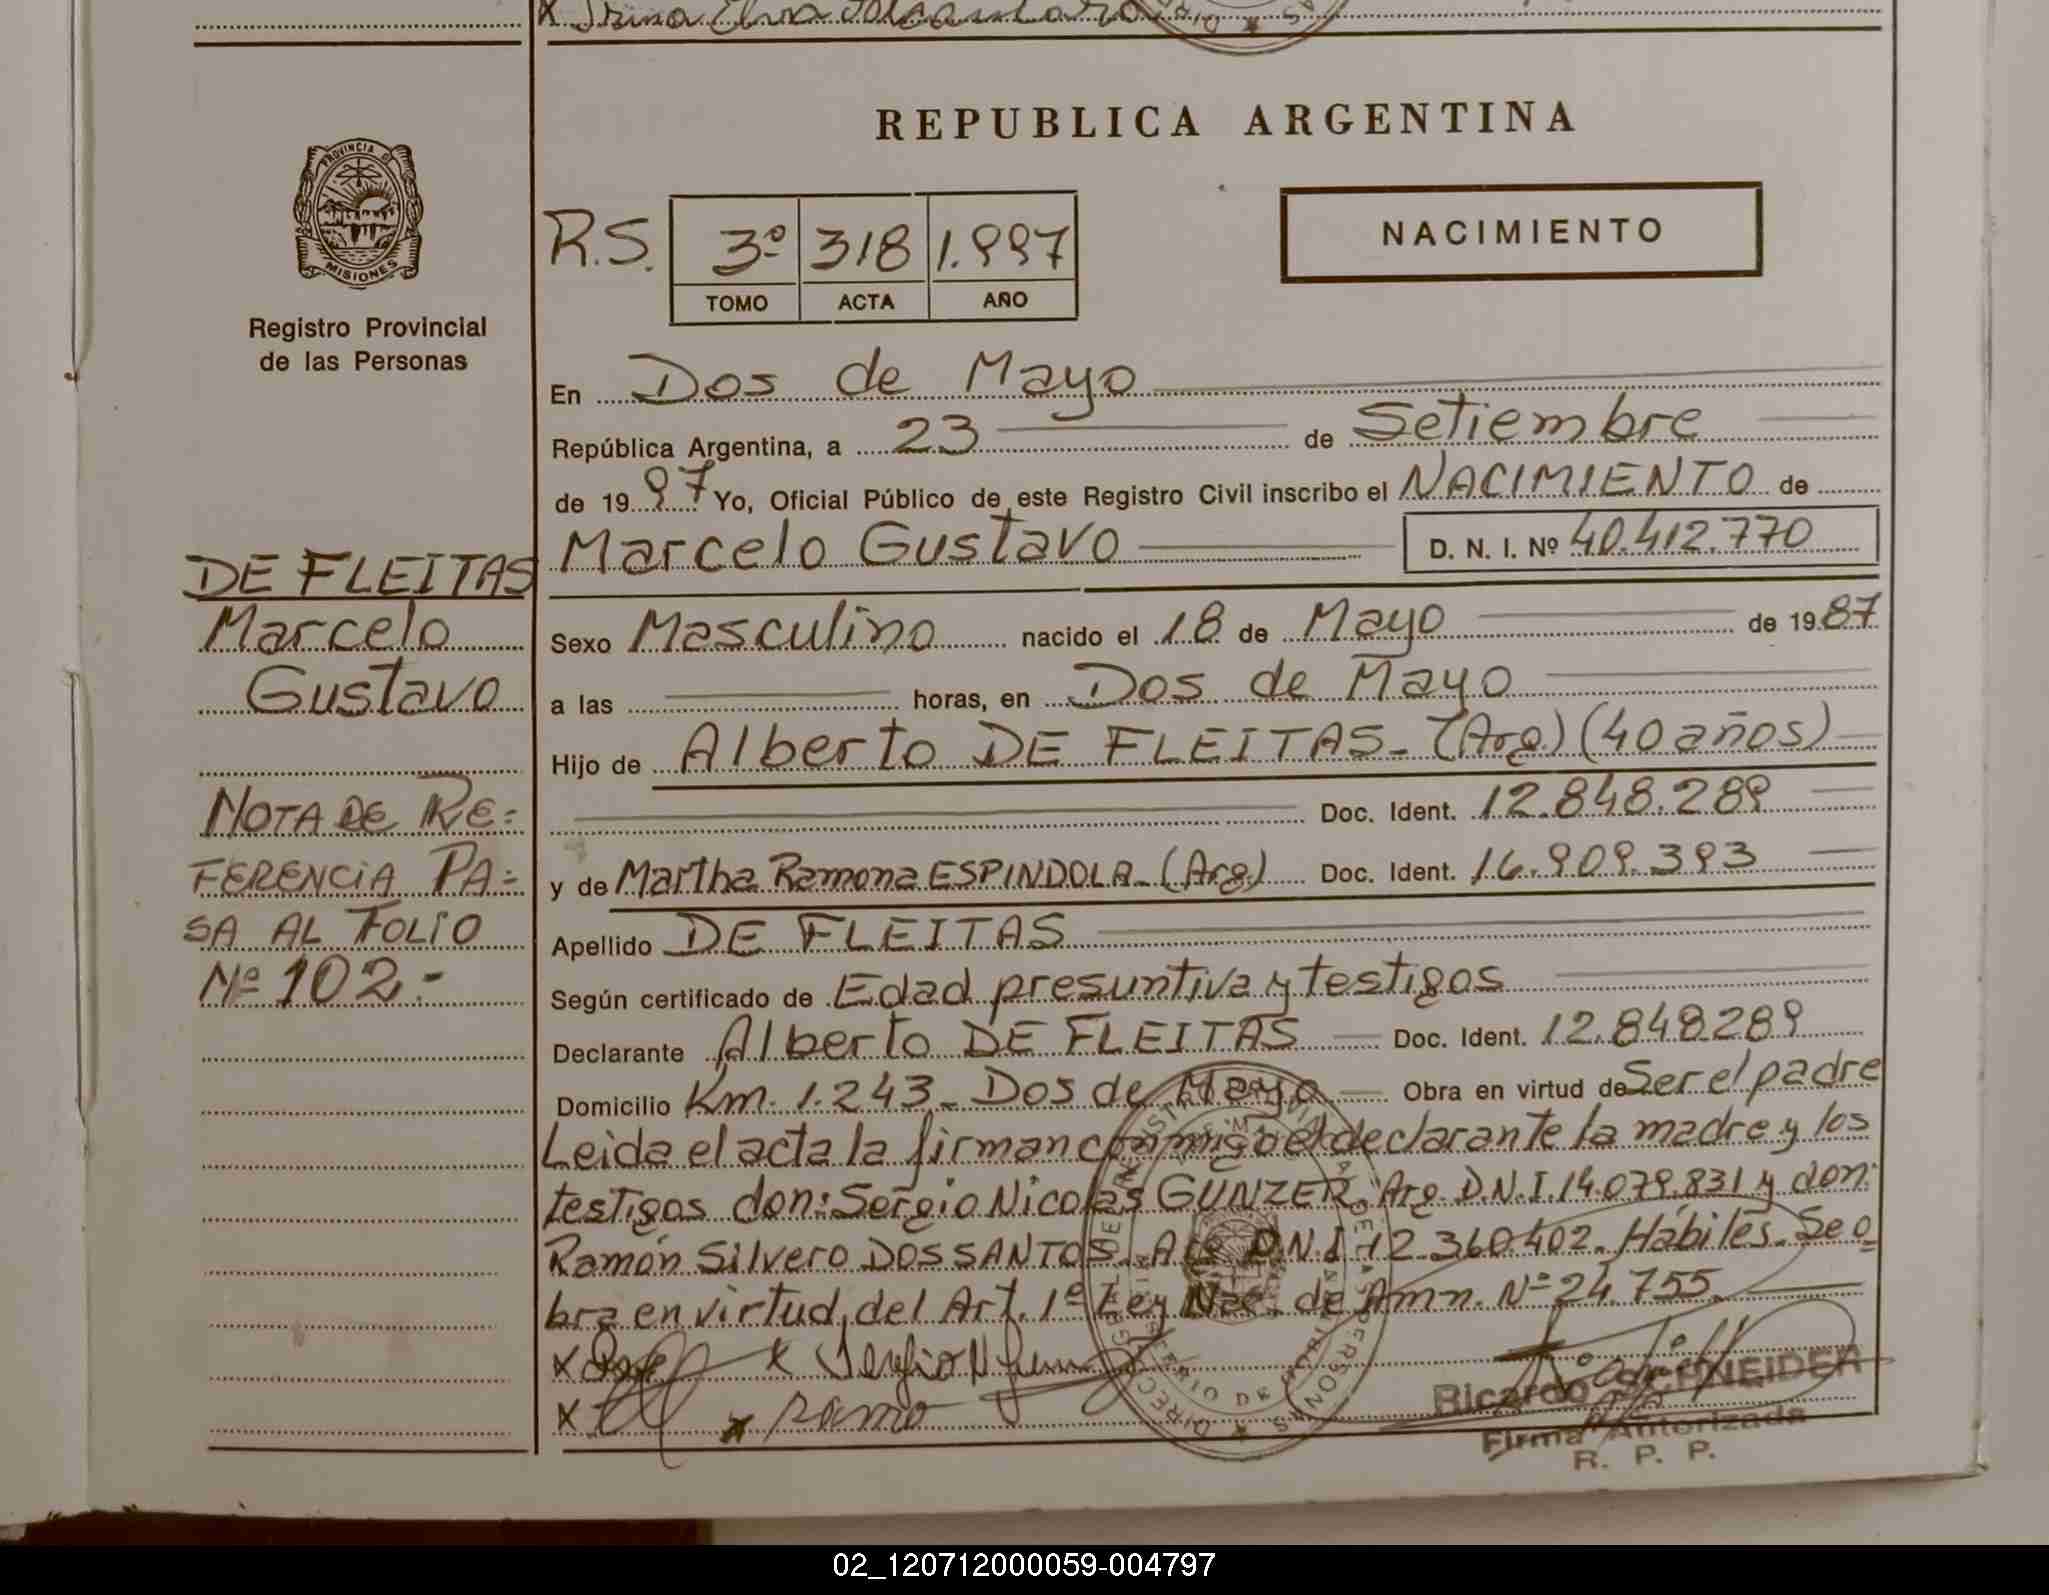 REPUBLICA ARGENTINA
PROVINCIA DE
MISIONES
Registro Provincial
de las Personas
R.S. 3º 318 1.997
TOMO ACTA AÑO
NACIMIENTO
En Dos de Mayo
República Argentina, a 23 de Setiembre
de 1997 Yo, Oficial Público de este Registro Civil inscribo el NACIMIENTO de
Marcelo Gustavo D. N. I. Nº 40.412.770
Sexo Masculino nacido el 18 de Mayo de 1987
a las horas, en Dos de Mayo
Hijo de Alberto DE FLEITAS - (Arg.) (40 años)
Doc. Ident. 12.848.289
y de Martha Ramona ESPINDOLA - (Arg.) Doc. Ident. 16.909.393
Apellido DE FLEITAS
Según certificado de Edad presuntiva y testigos
Declarante Alberto DE FLEITAS Doc. Ident. 12.848289
Domicilio Km. 1.243 - Dos de Mayo Obra en virtud de Ser el padre
Leida el acta la firman conmigo el declarante la madre y los
testigos don: Sergio Nicolas GUNZER. Arg. D.N.I. 14.079.831 y don:
Ramón Silvero DOS SANTOS - Arg D.N.I. 12.360402. Hábiles. Se o
bra en virtud del Art. 1º Ley Nac. de Amn. Nº 24.755.
X X Sergio N
X X Ramo
Ricardo SCHNEIDER
Firma Autorizada
R. P. P.
DE FLEITAS
Marcelo
Gustavo
NOTA DE RE=
FERENCIA PA=
SA AL FOLIO
Nº 102.-
02_120712000059-004797